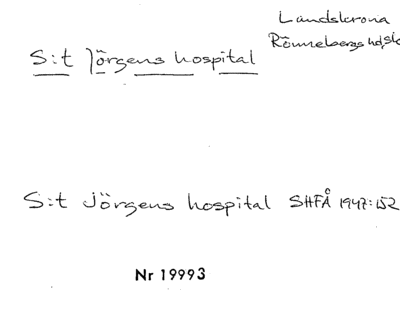 Landskrona
Rönnebergs hd, Sk
S:t Jörgens hospital
S:t Jörgens hospital SHFÅ 1947:152
Nr 19993